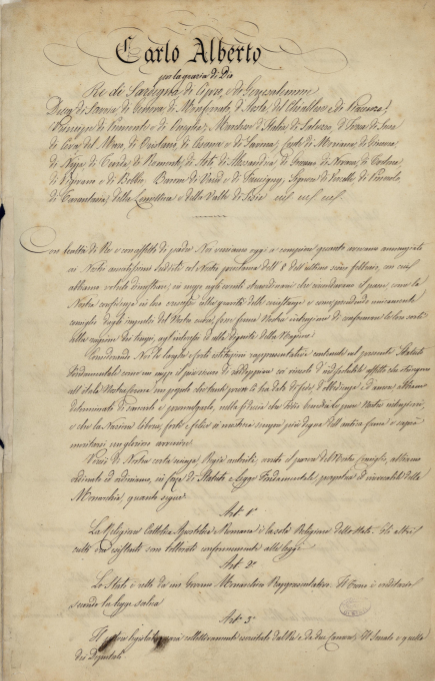 Carlo Alberto
per la grazia di Dio
Re di Sardegna di Cipro, e di Gerusalemme
Duca di Savoia di Genova, di Monferrato, d'Aosta, del Chiablese e di Piacenza;
Principe di Piemonte e di Oneglia; Marchese d'Italia, di Saluzzo, d'Ivrea, di Susa
di Ceva, del Maro, di Oristano, di Cesana e di Savona; Conte di Moriana, di Ginevra,
di Nizza di Tenda, di Romonte, di Asti di Alessandria, di Goceano, di Novara, di Tortona
di Vigevano e di Bobbio; Barone di Vaud e di Faucigny; Signore di Vercelli, di Pinerolo,
di Tarantasia, della Lumellina e della Valle di Sesia
Con lealtà di Re e con affetto di padre Noi veniamo oggi a compiere quanto avevamo annunziato
ai Nostri amatissimi sudditi col Nostro proclama dell'8 dell'ultimo scorso febbraio, con cui
abbiamo voluto dimostrare, in mezzo agli eventi straordinarii che circondavano il paese, come la
Nostra confidenza in loro crescesse colla gravità delle circostanze, e come prendendo unicamente
consiglio dagli impulsi del Nostro cuore, fosse ferma Nostra intenzione di conformare le loro sorti
alla ragione dei tempi, agl'interessi ed alla dignità della Nazione
Considerando Noi le larghe e forti istituzioni rappresentative contenute nel presente Statuto
Fondamentale come un mezzo il più sicuro di raddoppiare coi vincoli d'indissolubile affetto che stringono
all'itala Nostra Corona un popolo che tante prove Ci ha dato di fede, d'obbedienza e d'amore, abbiamo
determinato di sancirlo e promulgarlo, nella fiducia che Iddio benedirà le pure Nostre intenzioni,
e che la Nazione libera, forte e felice si mostrerà sempre più degna dell'antica fama e saprà
meritarsi un glorioso avvenire
Perciò di Nostra certa scienza, Regia autorità, avuto il parere del Nostro Consiglio, abbiamo
ordinato ed ordiniamo, in forza di Statuto e Legge Fondamentale, perpetua ed irrevocabile della
Monarchia, quanto segue
Art. 1°
La Religione Cattolica Apostolica e Romana è la sola Religione dello Stato. Gli altri
culti ora esistenti sono tollerati conformemente alle leggi
Art. 2°
Lo Stato è retto da un Governo Monarchico Rappresentativo. Il Trono è ereditario
secondo la legge salica
Art. 3°
Il potere legislativo sarà collettivamente esercitato dal Re e da due Camere; Il Senato e quella
dei Deputati